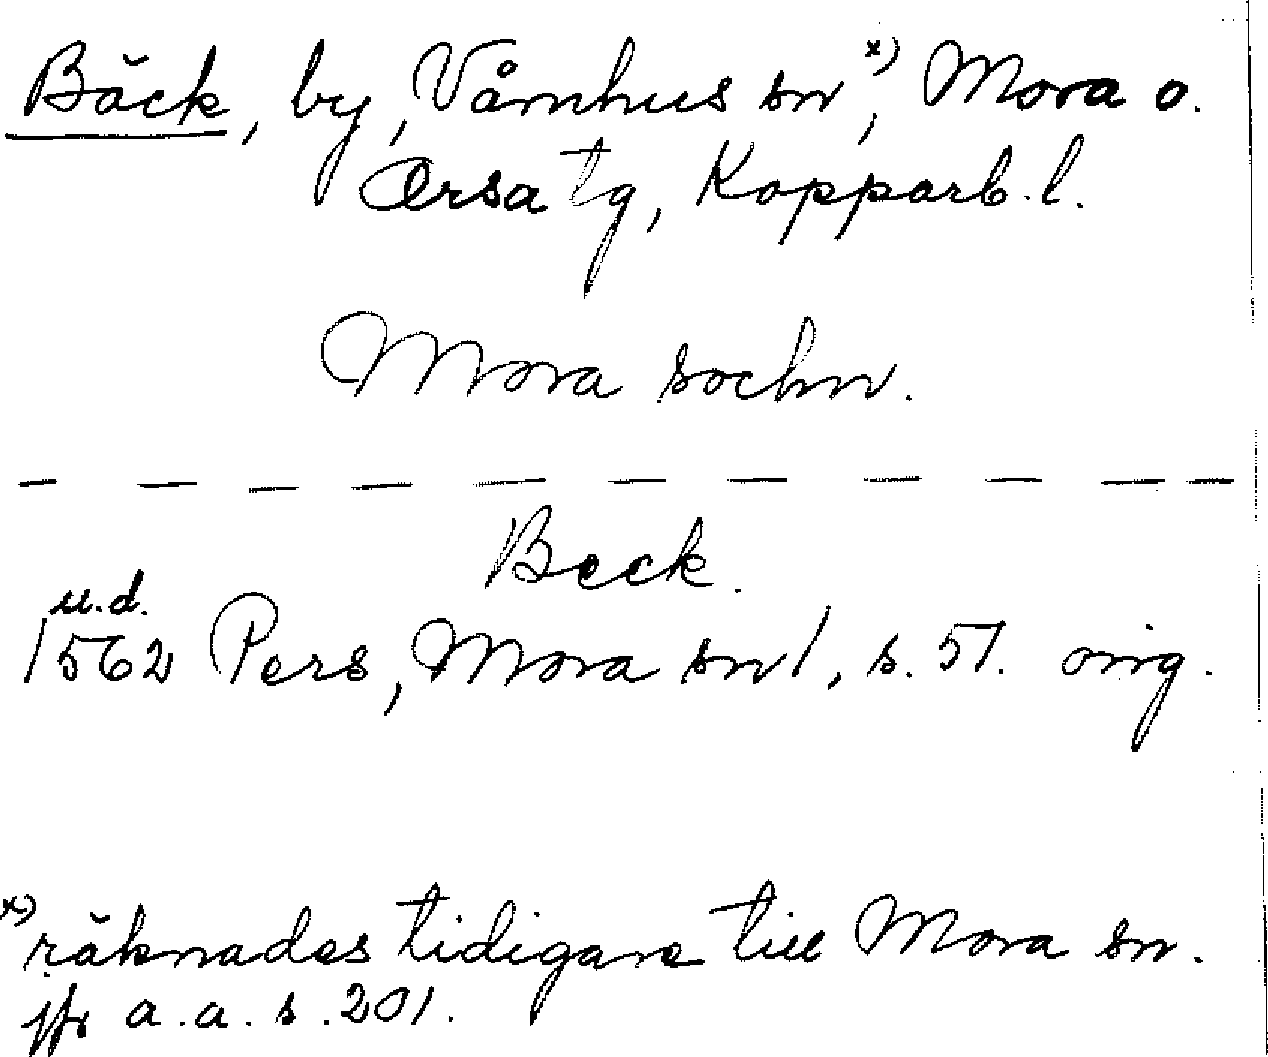 Bäck, by, Våmhus sn x), Mora o.
Orsa tg, Kopparb. l.
Mora sochn.
Beck.
u.d.
1562 Pers, Mora sn/, s. 51. orig.
x) räknades tidigare till Mora sn.
jfr a.a. s. 201.